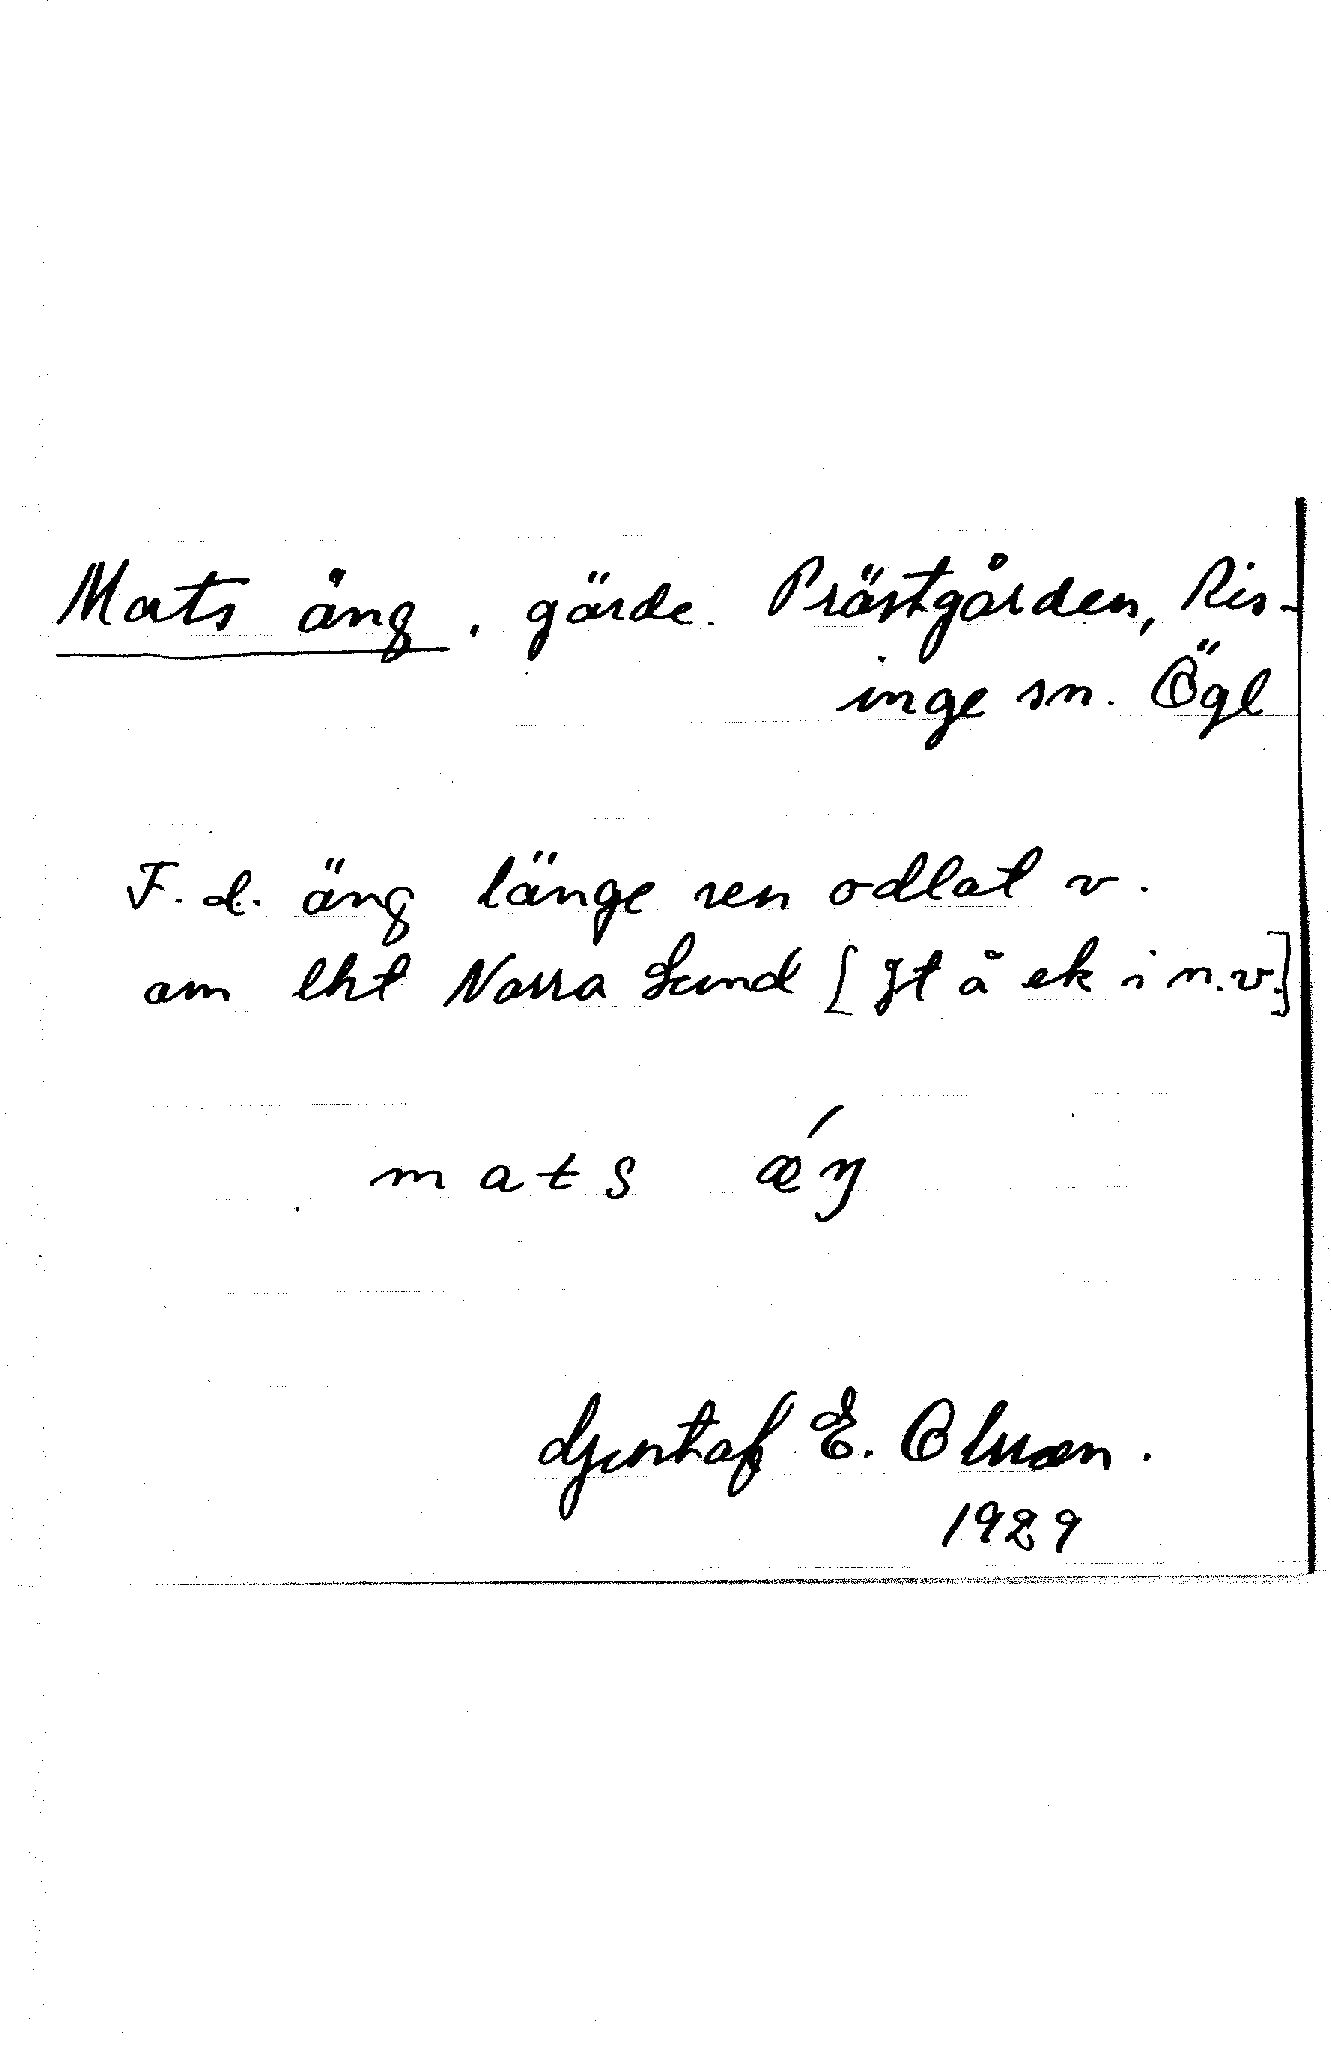 Mats äng, gärde. Prästgården, Ris-
inge sn. Ögl
F. d. äng länge sen odlat v.
om lht Norra Lund [Jt å ek i n.v.]
mats æ´ŋ
Gustaf E. Olsson.
1929